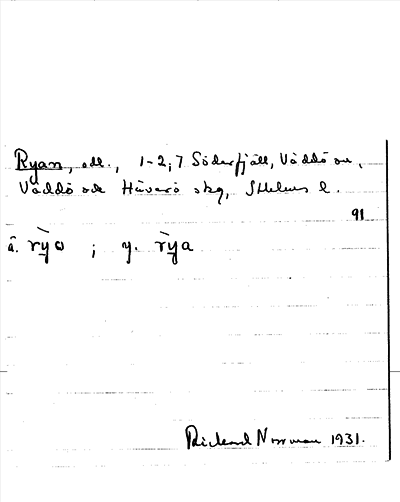 Ryan, odl., 1-2; 7 Söderfjäll, Väddö sn,
Väddö och Häverö skg, Sthlms l.
91
ä. rỳ̠ɷ ; y. rỳ̠a
Rickard Norrman 1931.